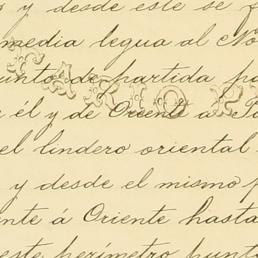 y desde este se f
media legua al No
unto de partida pa
él y de Oriente a P
el lindero oriental
y desde el mismo p
nte á Oriente hasta
este perímetro punto